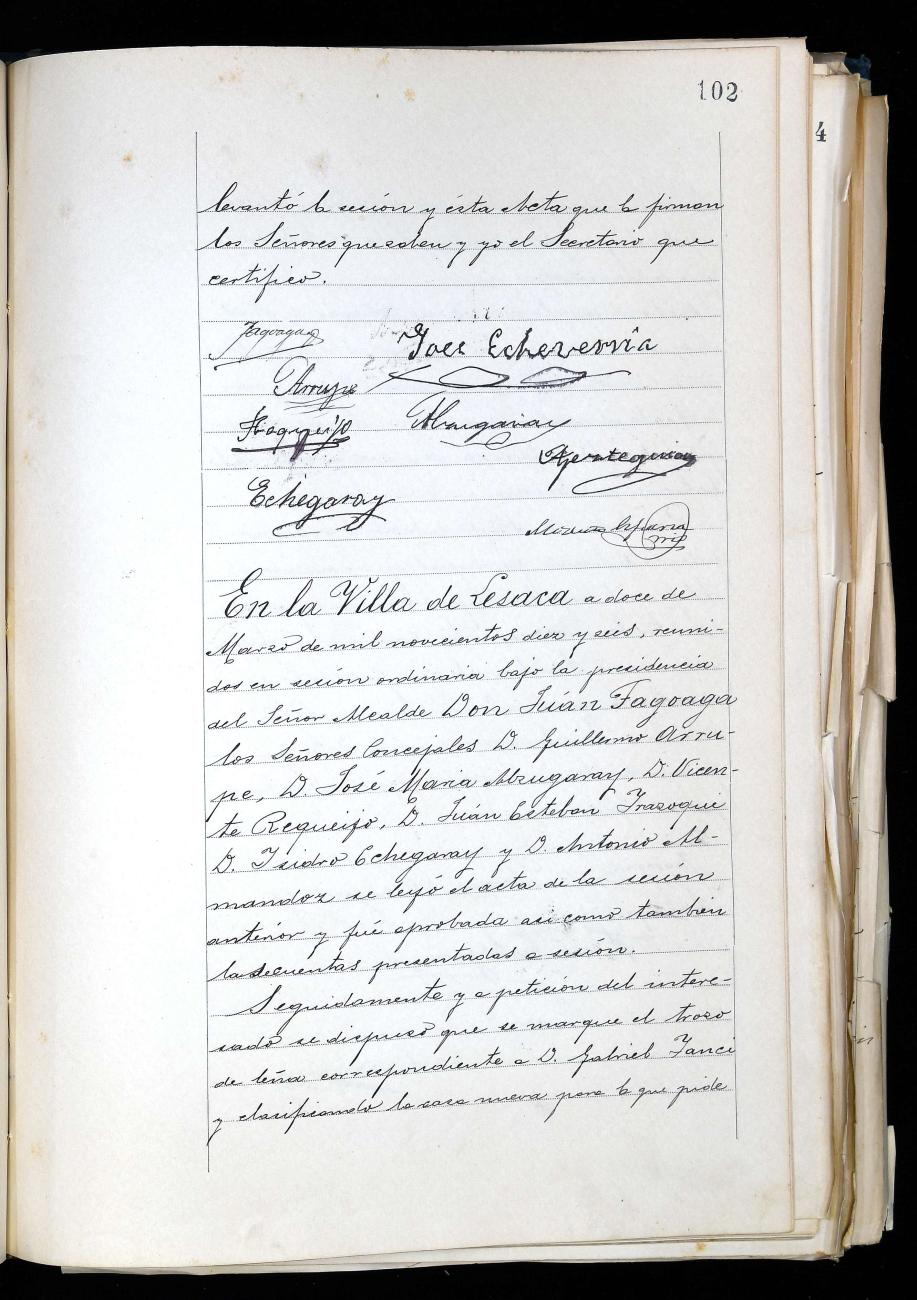 102
4
levantó la sesión y ésta Acta que la firman
los Señores que saben y yo el Secretario que
certifico.
Fagoaga
José Echeverría
Arrupe
Requeijo
Alzugaray
Apezteguia
Echegaray
En la Villa de Lesaca a doce de
Marzo de mil novecientos diez y seis, reuni-
dos en sesión ordinaria bajo la presidencia
del Señor Alcalde Don Juán Fagoaga
los Señores Concejales D. Guillermo Arru-
pe, D. José Maria Alzugaray, D. Vicen-
te Requeijo, D. Juán Esteban Irazoqui
D. Isidro Echegaray y D. Antonio Al-
mandoz se leyó el acta de la sesión
anterior y fué aprobada asi como también
las cuentas presentadas a sesión.
Seguidamente y a petición del intere-
sado se dispuso que se marque el trozo
de leña correspondiente a D. Gabriel Tanci
y clasificando la casa nueva para la que pide